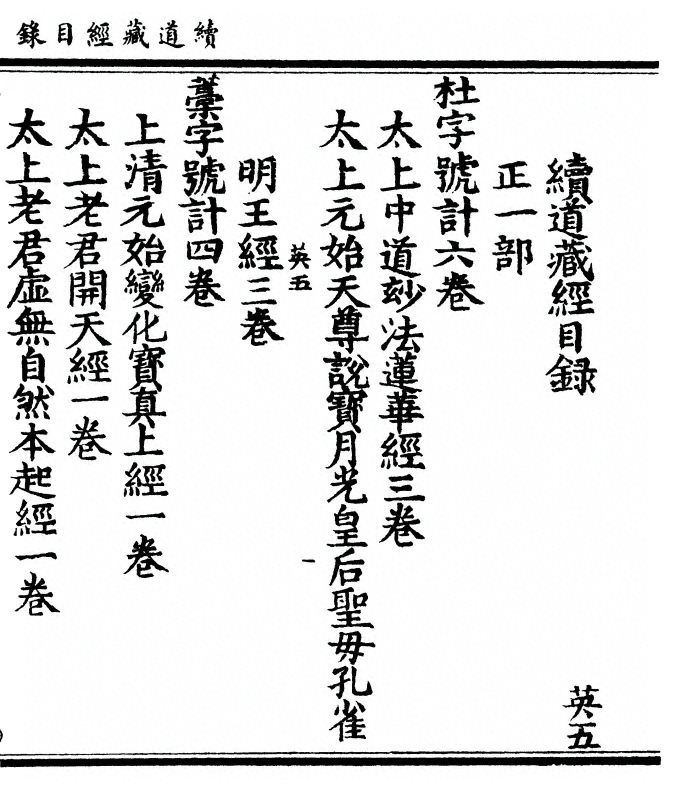 續道藏經目錄
續道藏經目録
英五
正一部
杜字號計六巻
太上中道玅法蓮華經三巻
太上元始天尊說寶月光皇后聖毋孔雀
英五
一
明王經三巻
藁字號計四巻
上清元始變化寶真上經一巻
太上老君開天經一巻
太上老君虛無自然本起經一巻